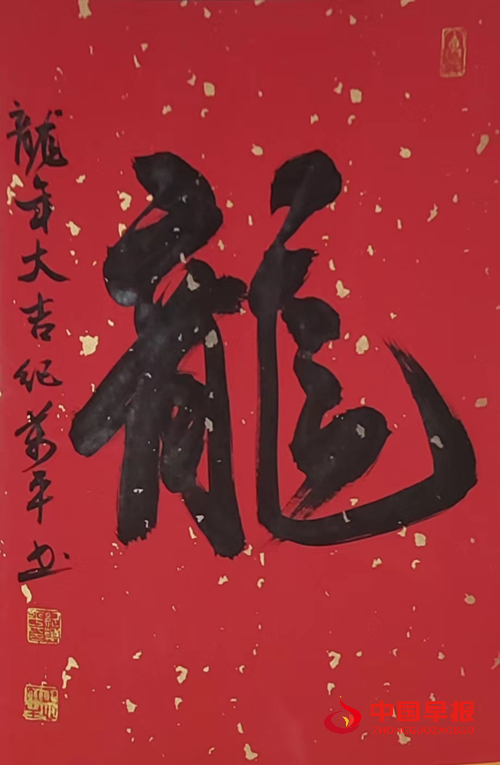 龍
龍年大吉纪萬平书
中国早报